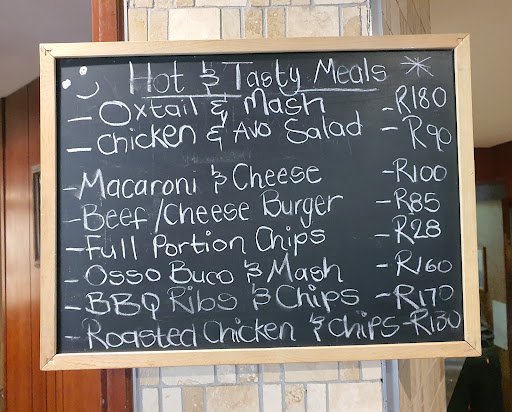 Hot & Tasty Meals
- Oxtail & Mash - R180
- Chicken & Avo Salad - R90
- Macaroni & Cheese - R100
- Beef/Cheese Burger - R85
- Full Portion Chips - R28
- Osso Buco & Mash - R160
- BBQ Ribs & Chips - R170
- Roasted Chicken & Chips - R130